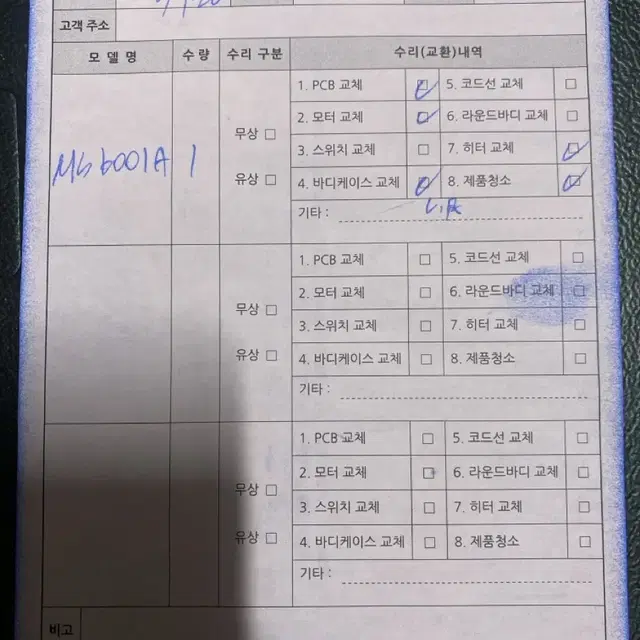 고객 주소
모 델 명 수 량 수리 구분 수리(교환)내역
MG6001A 1
무상 □
유상 □
1. PCB 교체 ☑ 5. 코드선 교체 □
2. 모터 교체 ☑ 6. 라운드바디 교체 □
3. 스위치 교체 □ 7. 히터 교체 ☑
4. 바디케이스 교체 ☑ 8. 제품청소 ☑
기타 :
무상 □
유상 □
1. PCB 교체 □ 5. 코드선 교체 □
2. 모터 교체 □ 6. 라운드바디 교체 □
3. 스위치 교체 □ 7. 히터 교체 □
4. 바디케이스 교체 □ 8. 제품청소 □
기타 :
무상 □
유상 □
1. PCB 교체 □ 5. 코드선 교체 □
2. 모터 교체 □ 6. 라운드바디 교체 □
3. 스위치 교체 □ 7. 히터 교체 □
4. 바디케이스 교체 □ 8. 제품청소 □
기타 :
비고